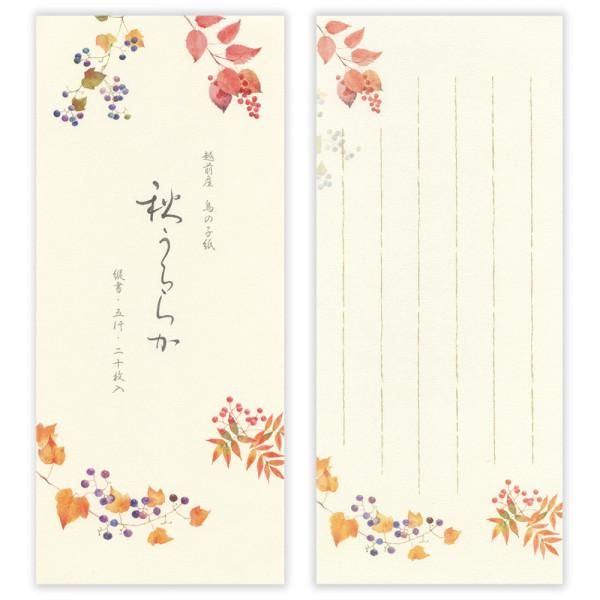 越前産 鳥の子紙
秋うららか
縦書・五行・二十枚入